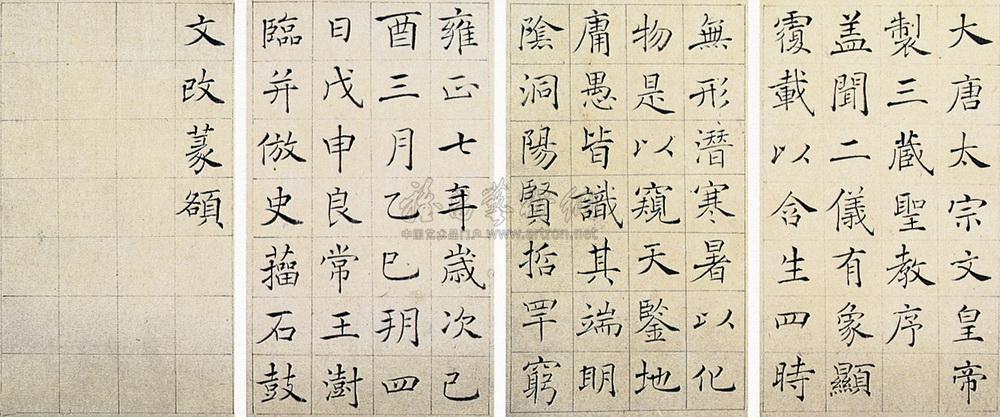 大唐太宗文皇帝
製三藏聖教序
盖聞二儀有象顯
覆載以含生四時
無形潛寒暑以化
物是以窺天鑒地
庸愚皆識其端明
陰洞陽賢哲罕窮
雍正七年歲次己
酉三月乙巳朔四
日戊申良常王澍
臨并倣史籀石鼓
文改篆額
中国艺术品门户 www.artron.net